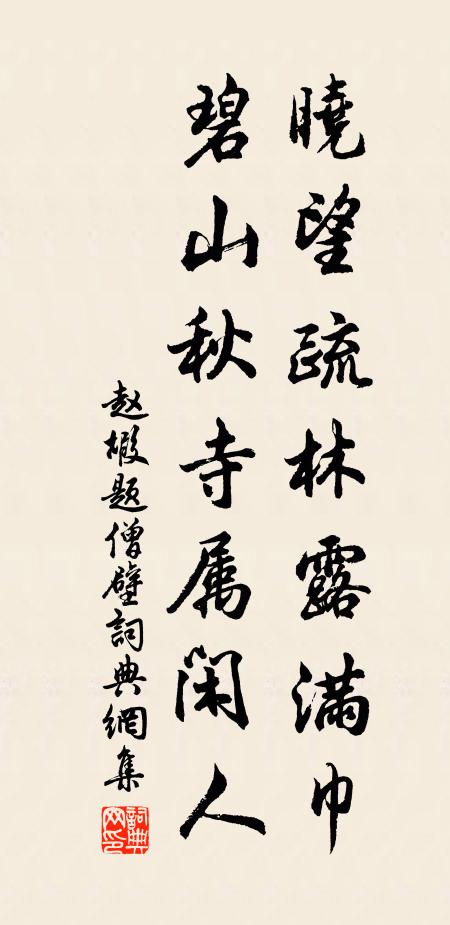 曉望疏林露滿巾
碧山秋寺属閑人
赵嘏题僧壁詞典網集
詞典网印